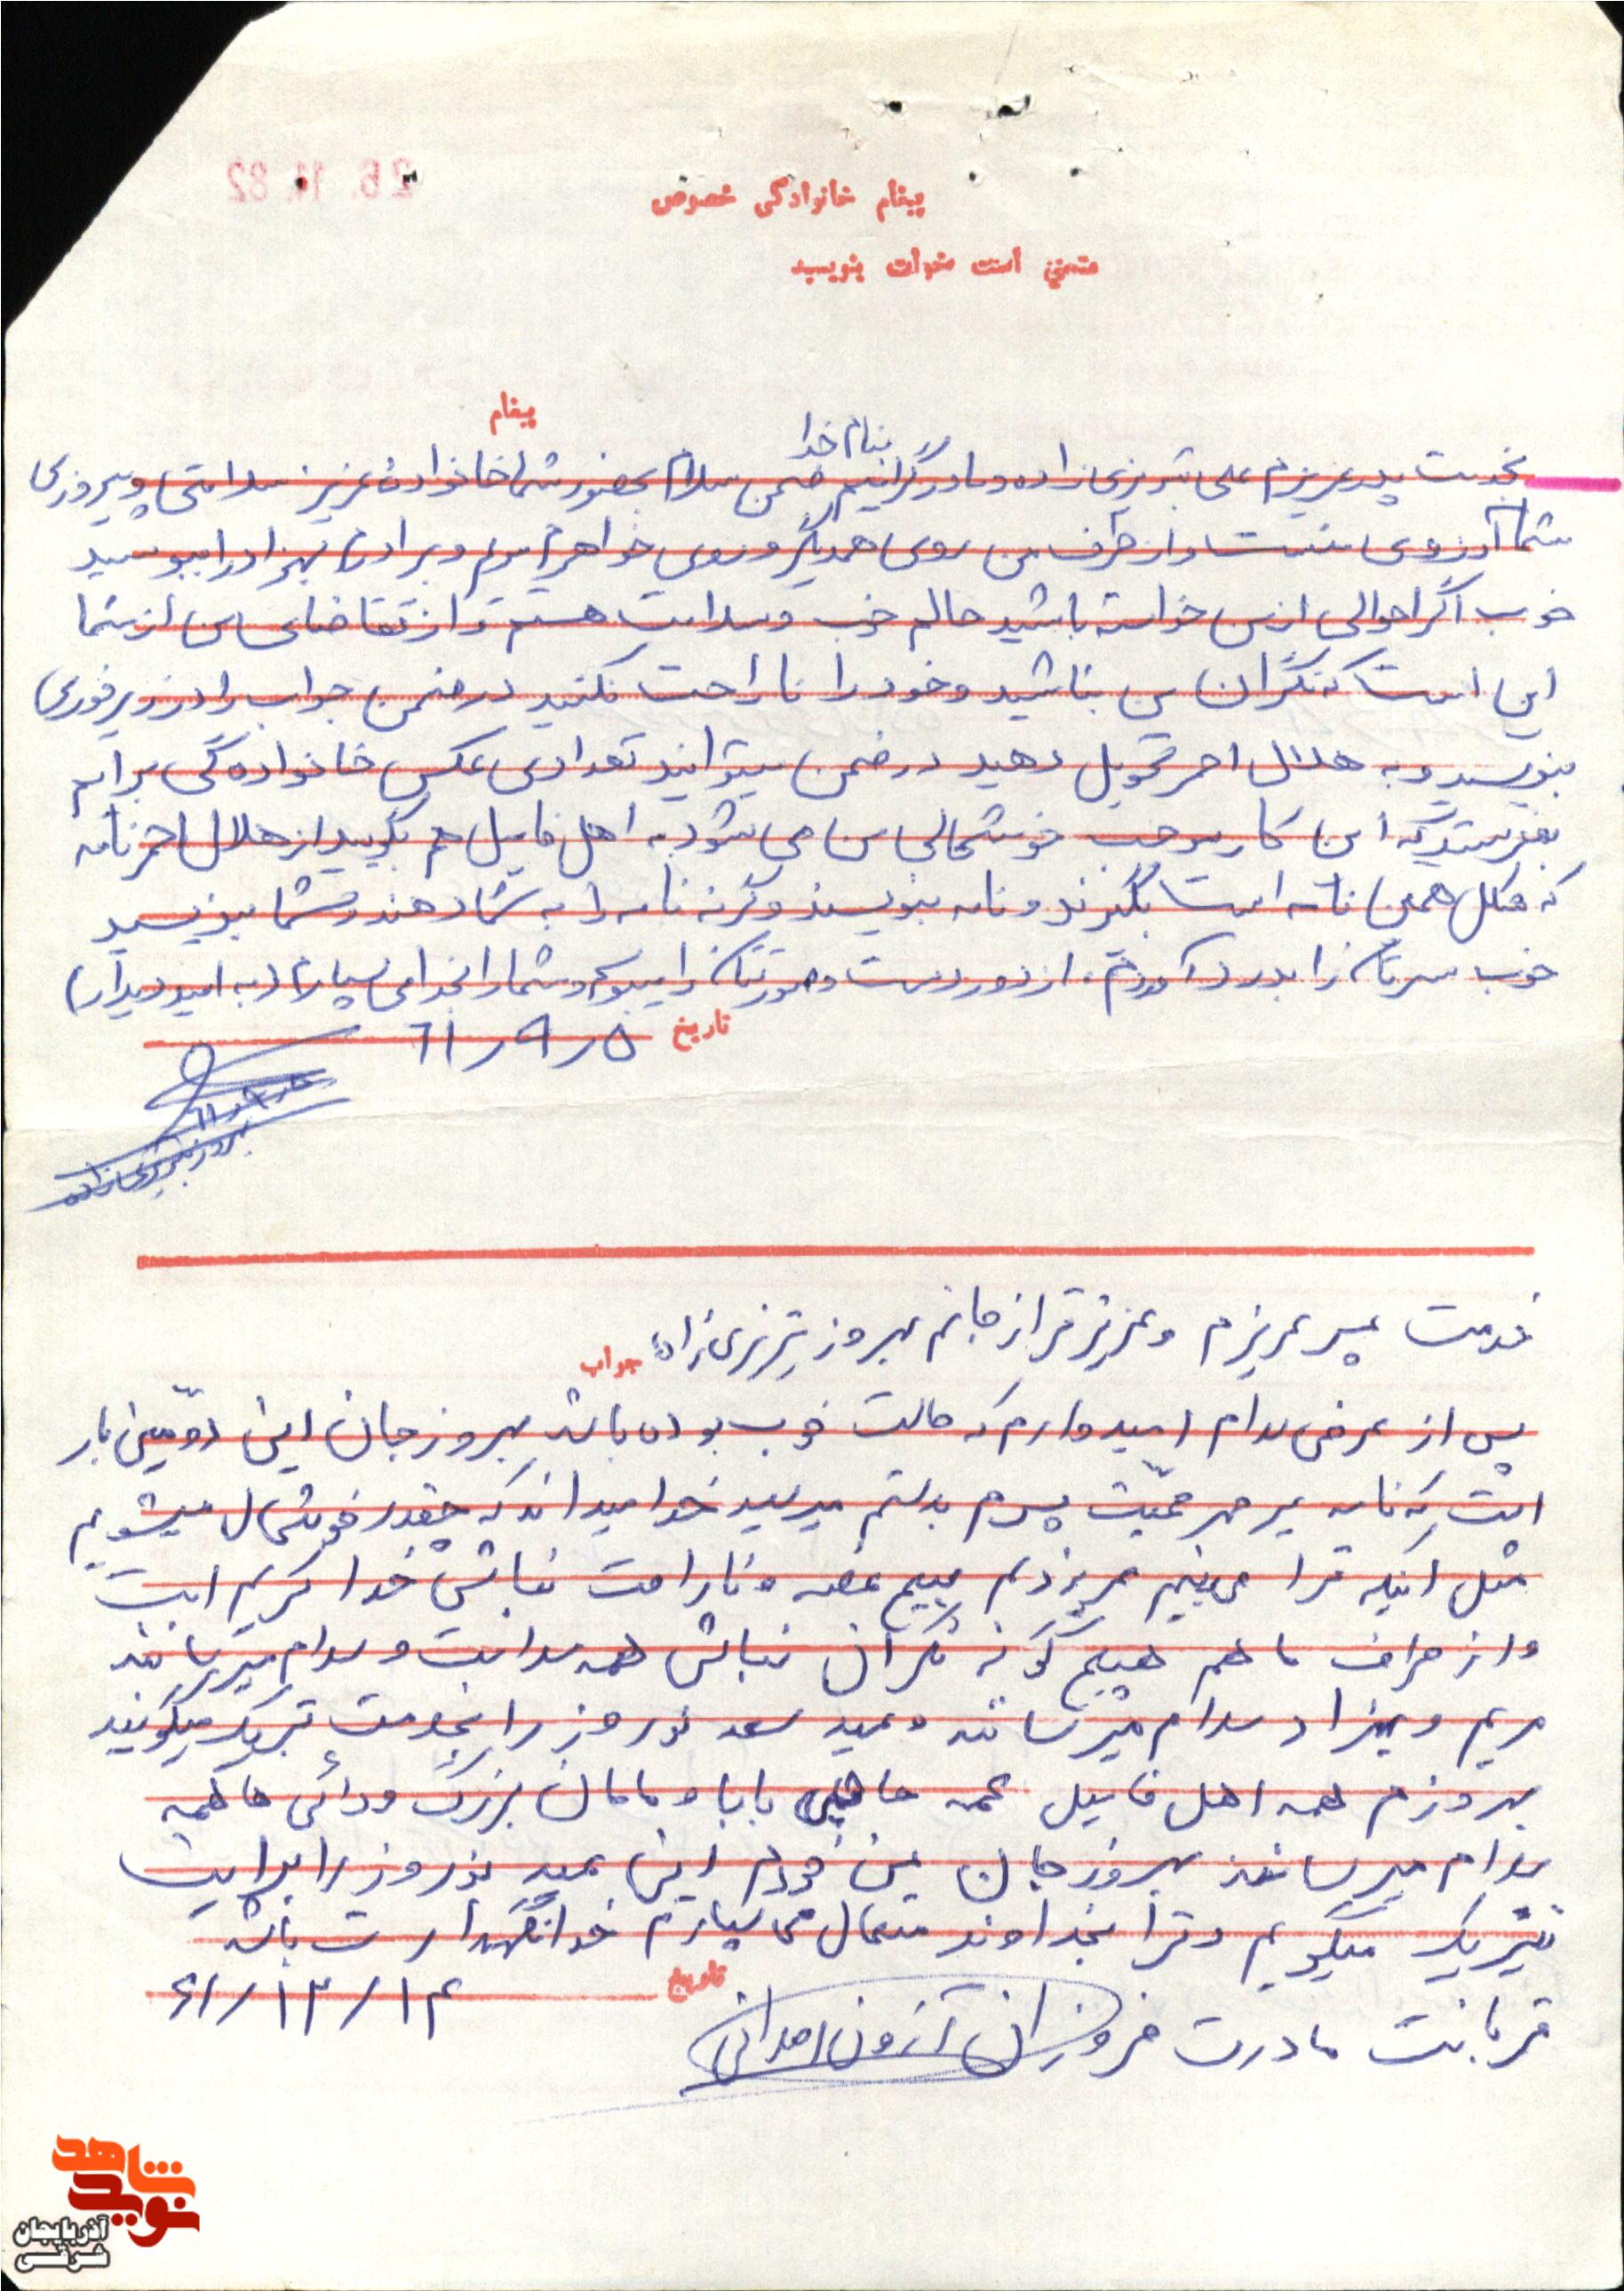 26. 11. 82
پیغام خانوادگی خصوصی
متمنی است خوانا بنویسید
پیغام
بنام خدا
بخدمت پدر عزیزم علی تبریزی زاده و مادر گرانیم ضمن سلام بحضور شما خانواده عزیز سلامتی و پیروزی
شما آرزوی منست و از طرف من روی همدیگر و روی خواهرم مریم و برادرم بهزاد را ببوسید
خوب اگر احوالی از من خواسته باشید حالم خوب و سلامت هستم و از تقاضای من از شما
این است که نگران من نباشید و خود را ناراحت نکنید در ضمن جواب را در زیر فوری
بنویسید و به هلال احمر تحویل دهید در ضمن میتوانید تعدادی عکس خانوادگی برایم
بفرستید که این کار موجب خوشحالی من می شود به اهل فامیل هم بگویید از هلال احمر نامه
که شکل همین نامه است بگیرند و نامه بنویسند وگرنه نامه را به شما دهند و شما بنویسید
خوب سرتان را بدرد آوردم از دور دست و صورتتان را میبوسم و شما را بخدا می سپارم (به امید دیدار)
تاریخ ۶۱/۹/۵
۶۱/۹/۵
بهروز تبریزی زاده
خدمت پسر عزیزم و عزیزتر از جانم بهروز تبریزی زاده
جواب
پس از عرض سلام امیدوارم که حالت خوب بوده باشد بهروز جان این دوّمین بار
است که نامه پر مهر محبّت پسرم بدستم میرسد خدا میداند که چقدر خوشحال میشویم
مثل اینکه ترا می بینم عزیزدلم هیچ غصه و ناراحت نباش خدا کریم است
و از طرف ما هم هیچ گونه نگران نباش همه سلامت و سلام میرسانند
مریم و بهزاد سلام میرسانند و عید سعد نوروز را بخدمت تبریک میگویند
بهروزم همه اهل فامیل عمه بابا و مامان بزرگ و دائی ها همه
سلام میرسانند بهروز جان من خودم این عید نوروز را برایت
تبریک میگویم و ترا بخداوند متعال می سپارم خدا نگهدارت باشد
تاریخ ۶۱/۱۲/۱۴
قربانت مادرت فروزان آزون احدانی
شاهد
نوید
آذربایجان
شرقی